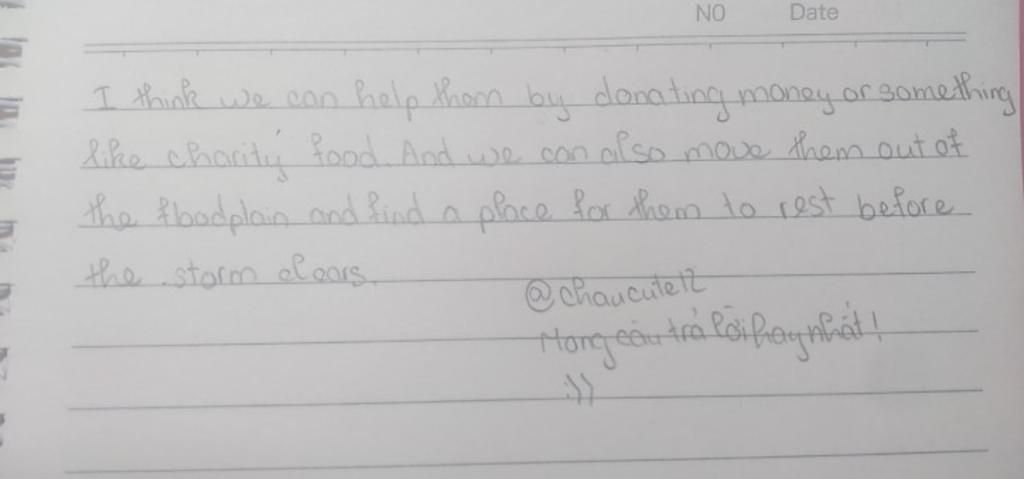 NO Date
I think we can help them by donating money or something
like charity food. And we can also move them out of
the floodplain and find a place for them to rest before
the storm clears.
@chaucute12
Mong câu trả lời hay nhất!
:))